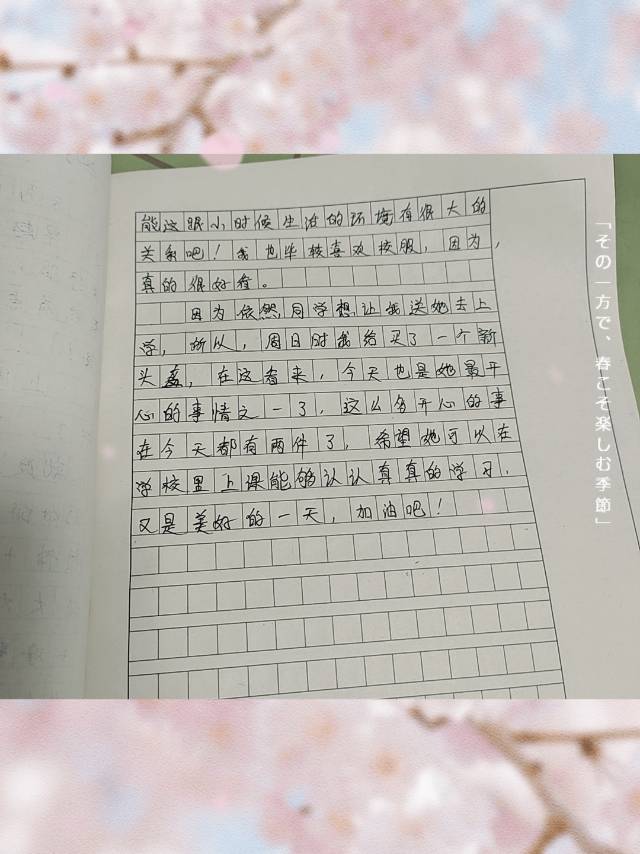 能这跟小时候生活的环境有很大的
关系吧！我也毕较喜欢校服，因为，
真的很好看。
因为依然同学想让我送她去上
学，所以，周日时我给买了一个新
头，在这看来，今天也是她最开
心的事情之一了，这么多开心的事
在今天都有两件了，希望她可以在
学校里上课能够认认真真的学习，
又是美好的一天，加油吧！
「その一方で、春こそ楽しむ季節」